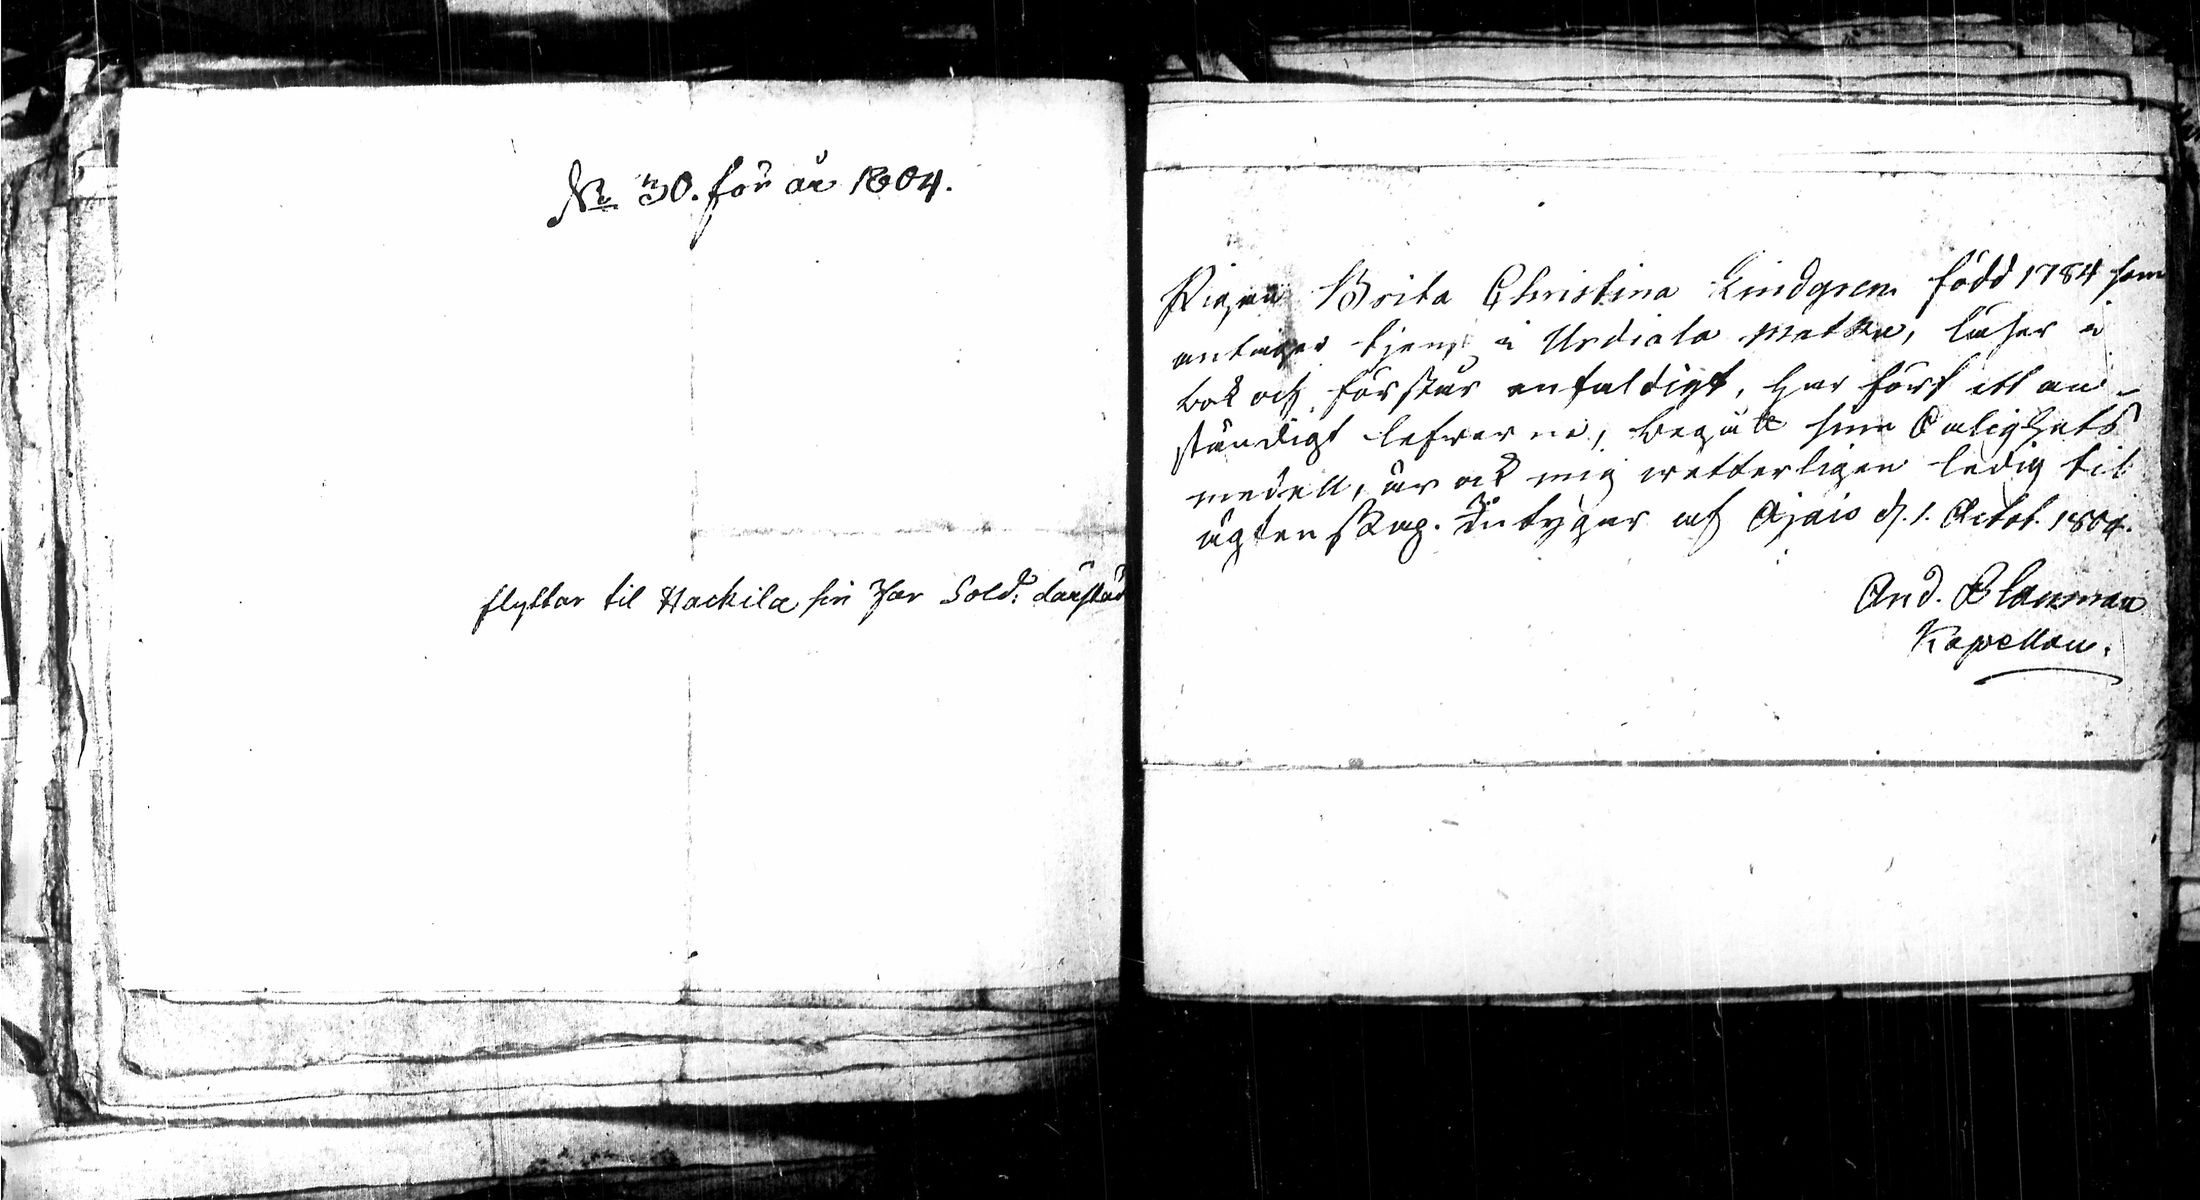 No 30. för år 1804.
flyttar til Hackila sin Far Sold: därstäd
Pigan Brita Christina Lindgren född 1784 som
antager tjenst i Urdiala Matku, läser i
bok och förstår enfaldigt, har fört ett an-
ständigt lefverne, begått sina Salighets
medell, är ock mig vetterligen ledig til
ägtenskap. intygar af Ajais d. 1. Octob. 1804.
And. Blauman
Kapellan.